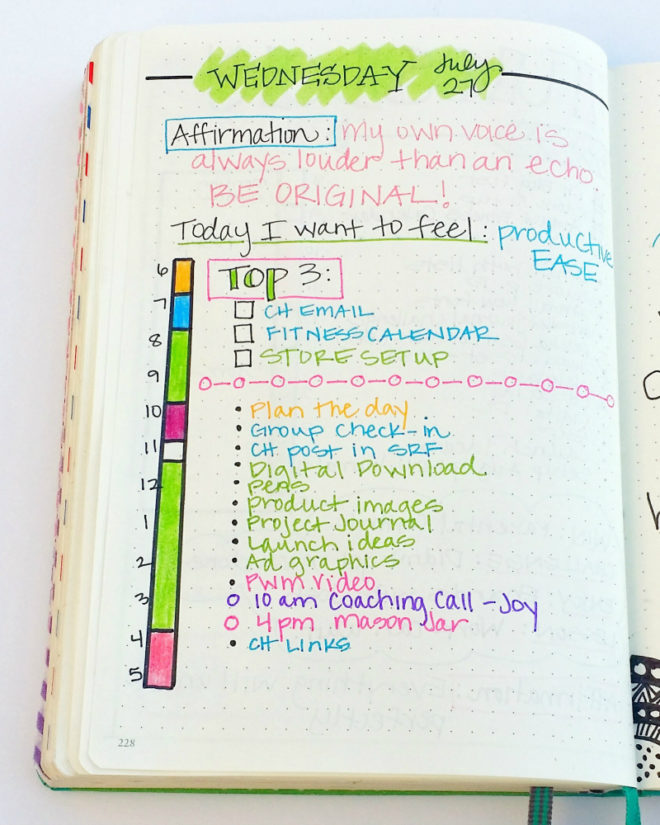 WEDNESDAY July 27
Affirmation: My own voice is
always louder than an echo.
BE ORIGINAL!
Today I want to feel: productive
EASE
Top 3:
CH EMAIL
FITNESS CALENDAR
STORE SETUP
6
7
8
9
10
11
12
1
2
3
4
5
• Plan the day
• Group Check-in
• CH post in SRF
• Digital Download
• PERS
• Product images
• Project Journal
• Launch ideas
• Ad graphics
• PWM Video
10 am Coaching Call - Joy
4 pm Mason Jar
• CH LINKS
228